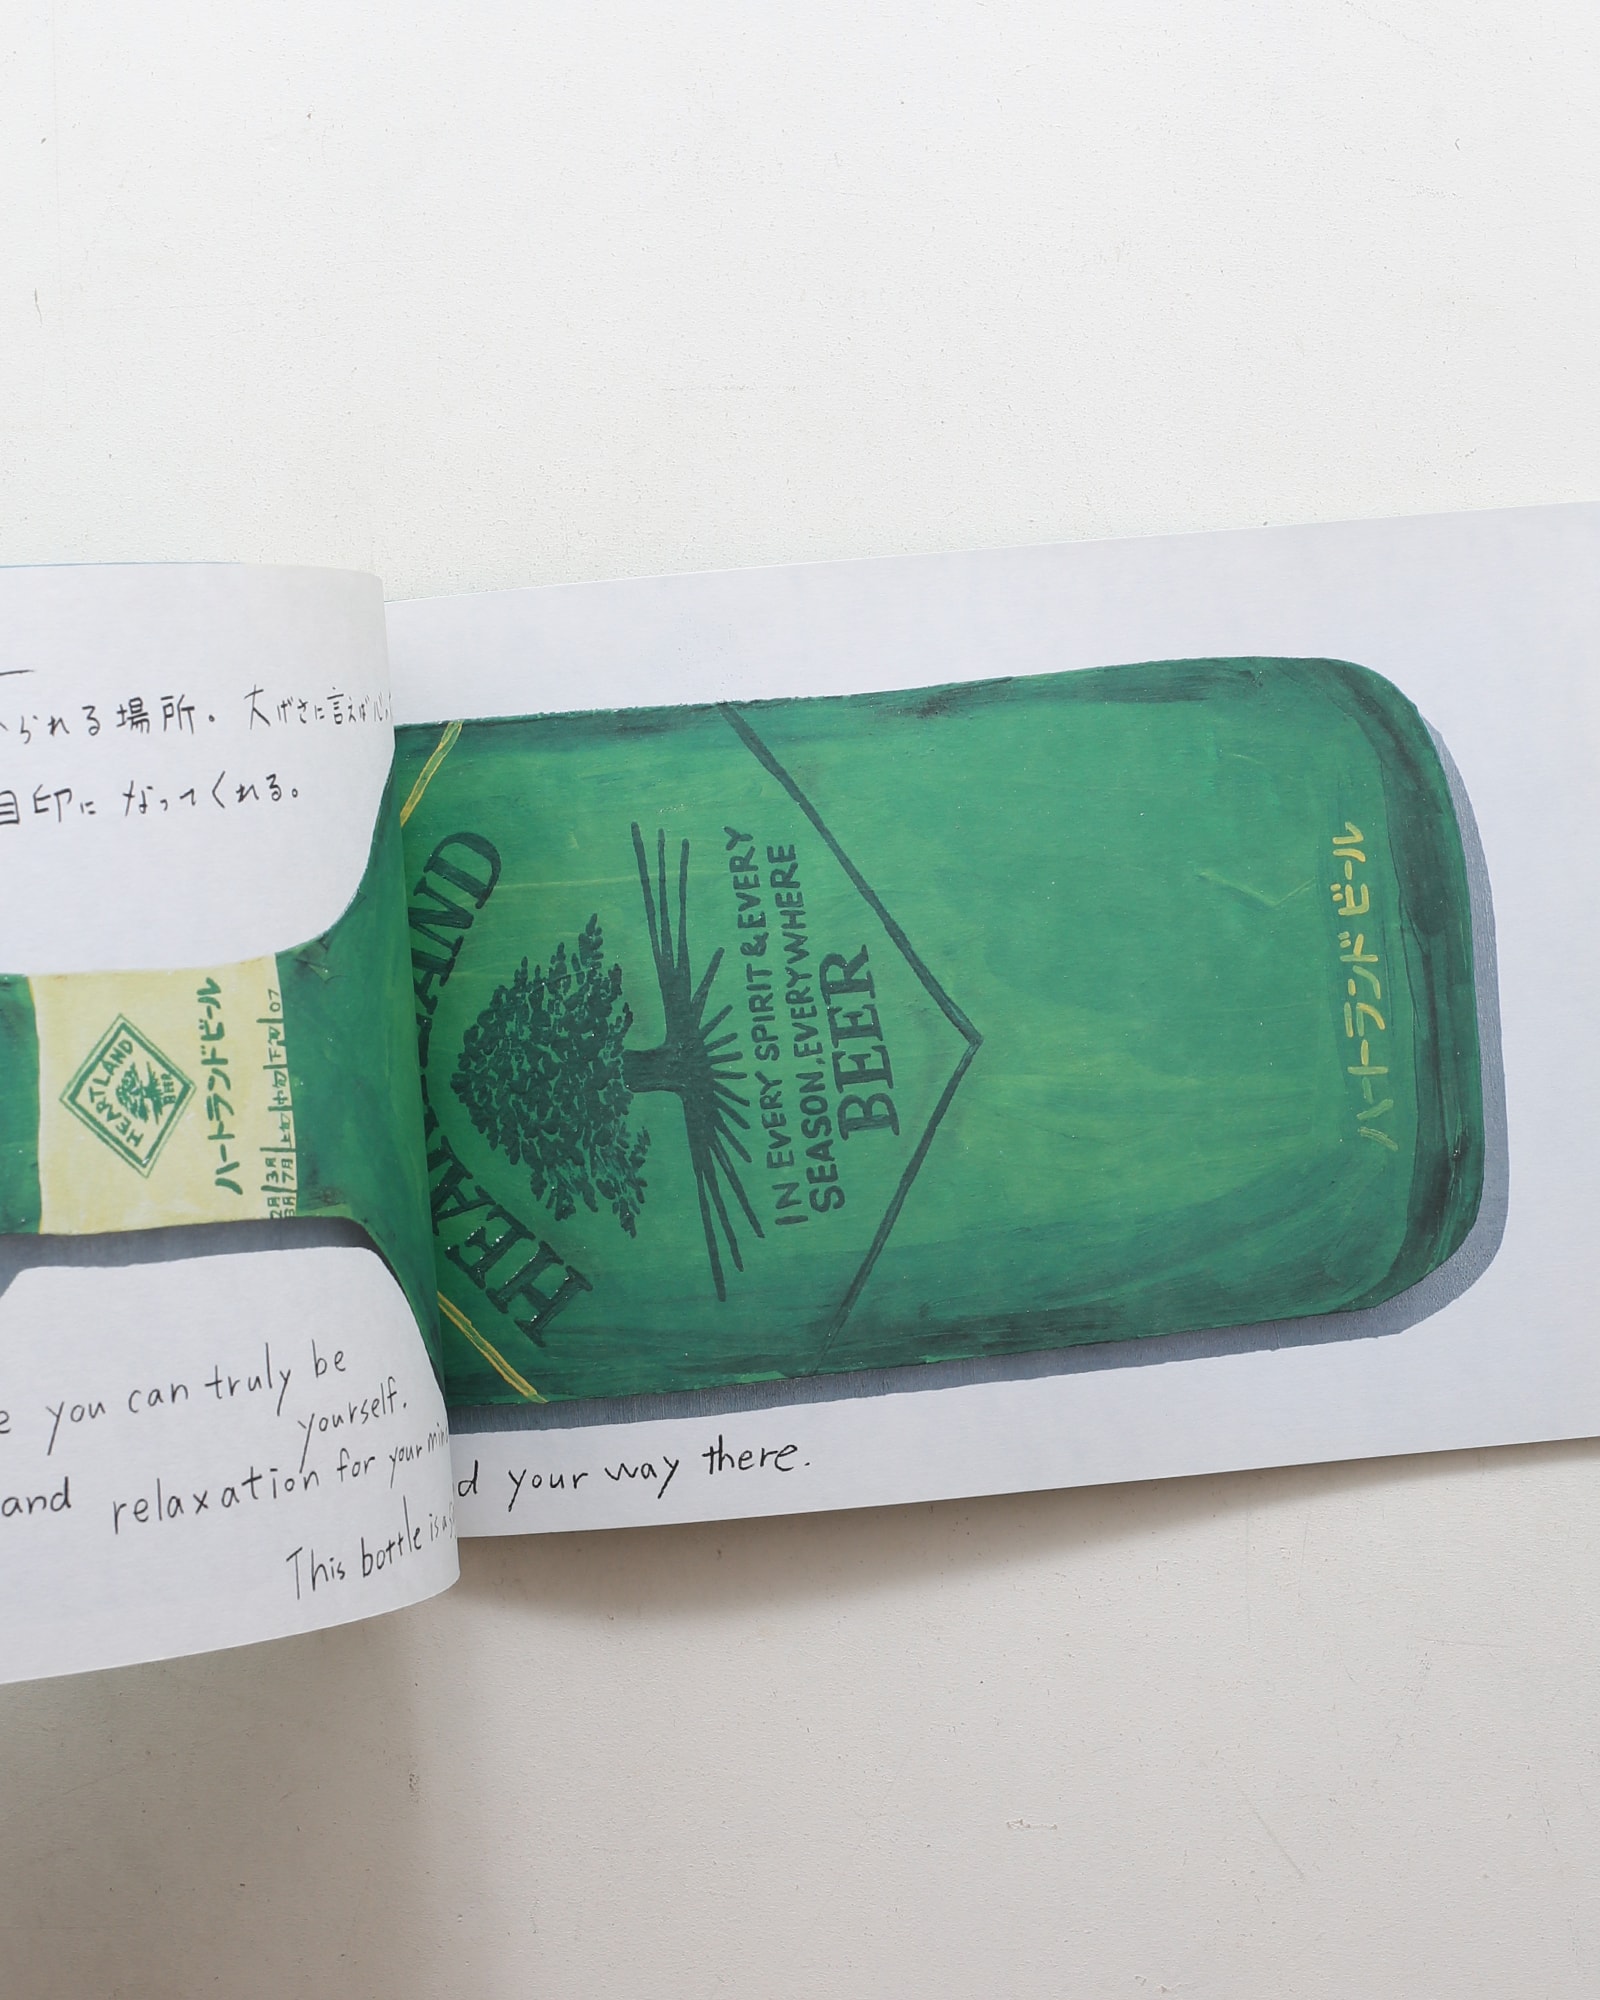 られる場所。大げさに言えば心
目印になってくれる。
HEARTLAND
BEER
ハートランドビール
2月 3月 上旬 中旬 下旬 07
7月
HEARTLAND
IN EVERY SPIRIT & EVERY
SEASON, EVERYWHERE
BEER
ハートランドビール
you can truly be
yourself.
and relaxation for your
This bottle is a
your way there.